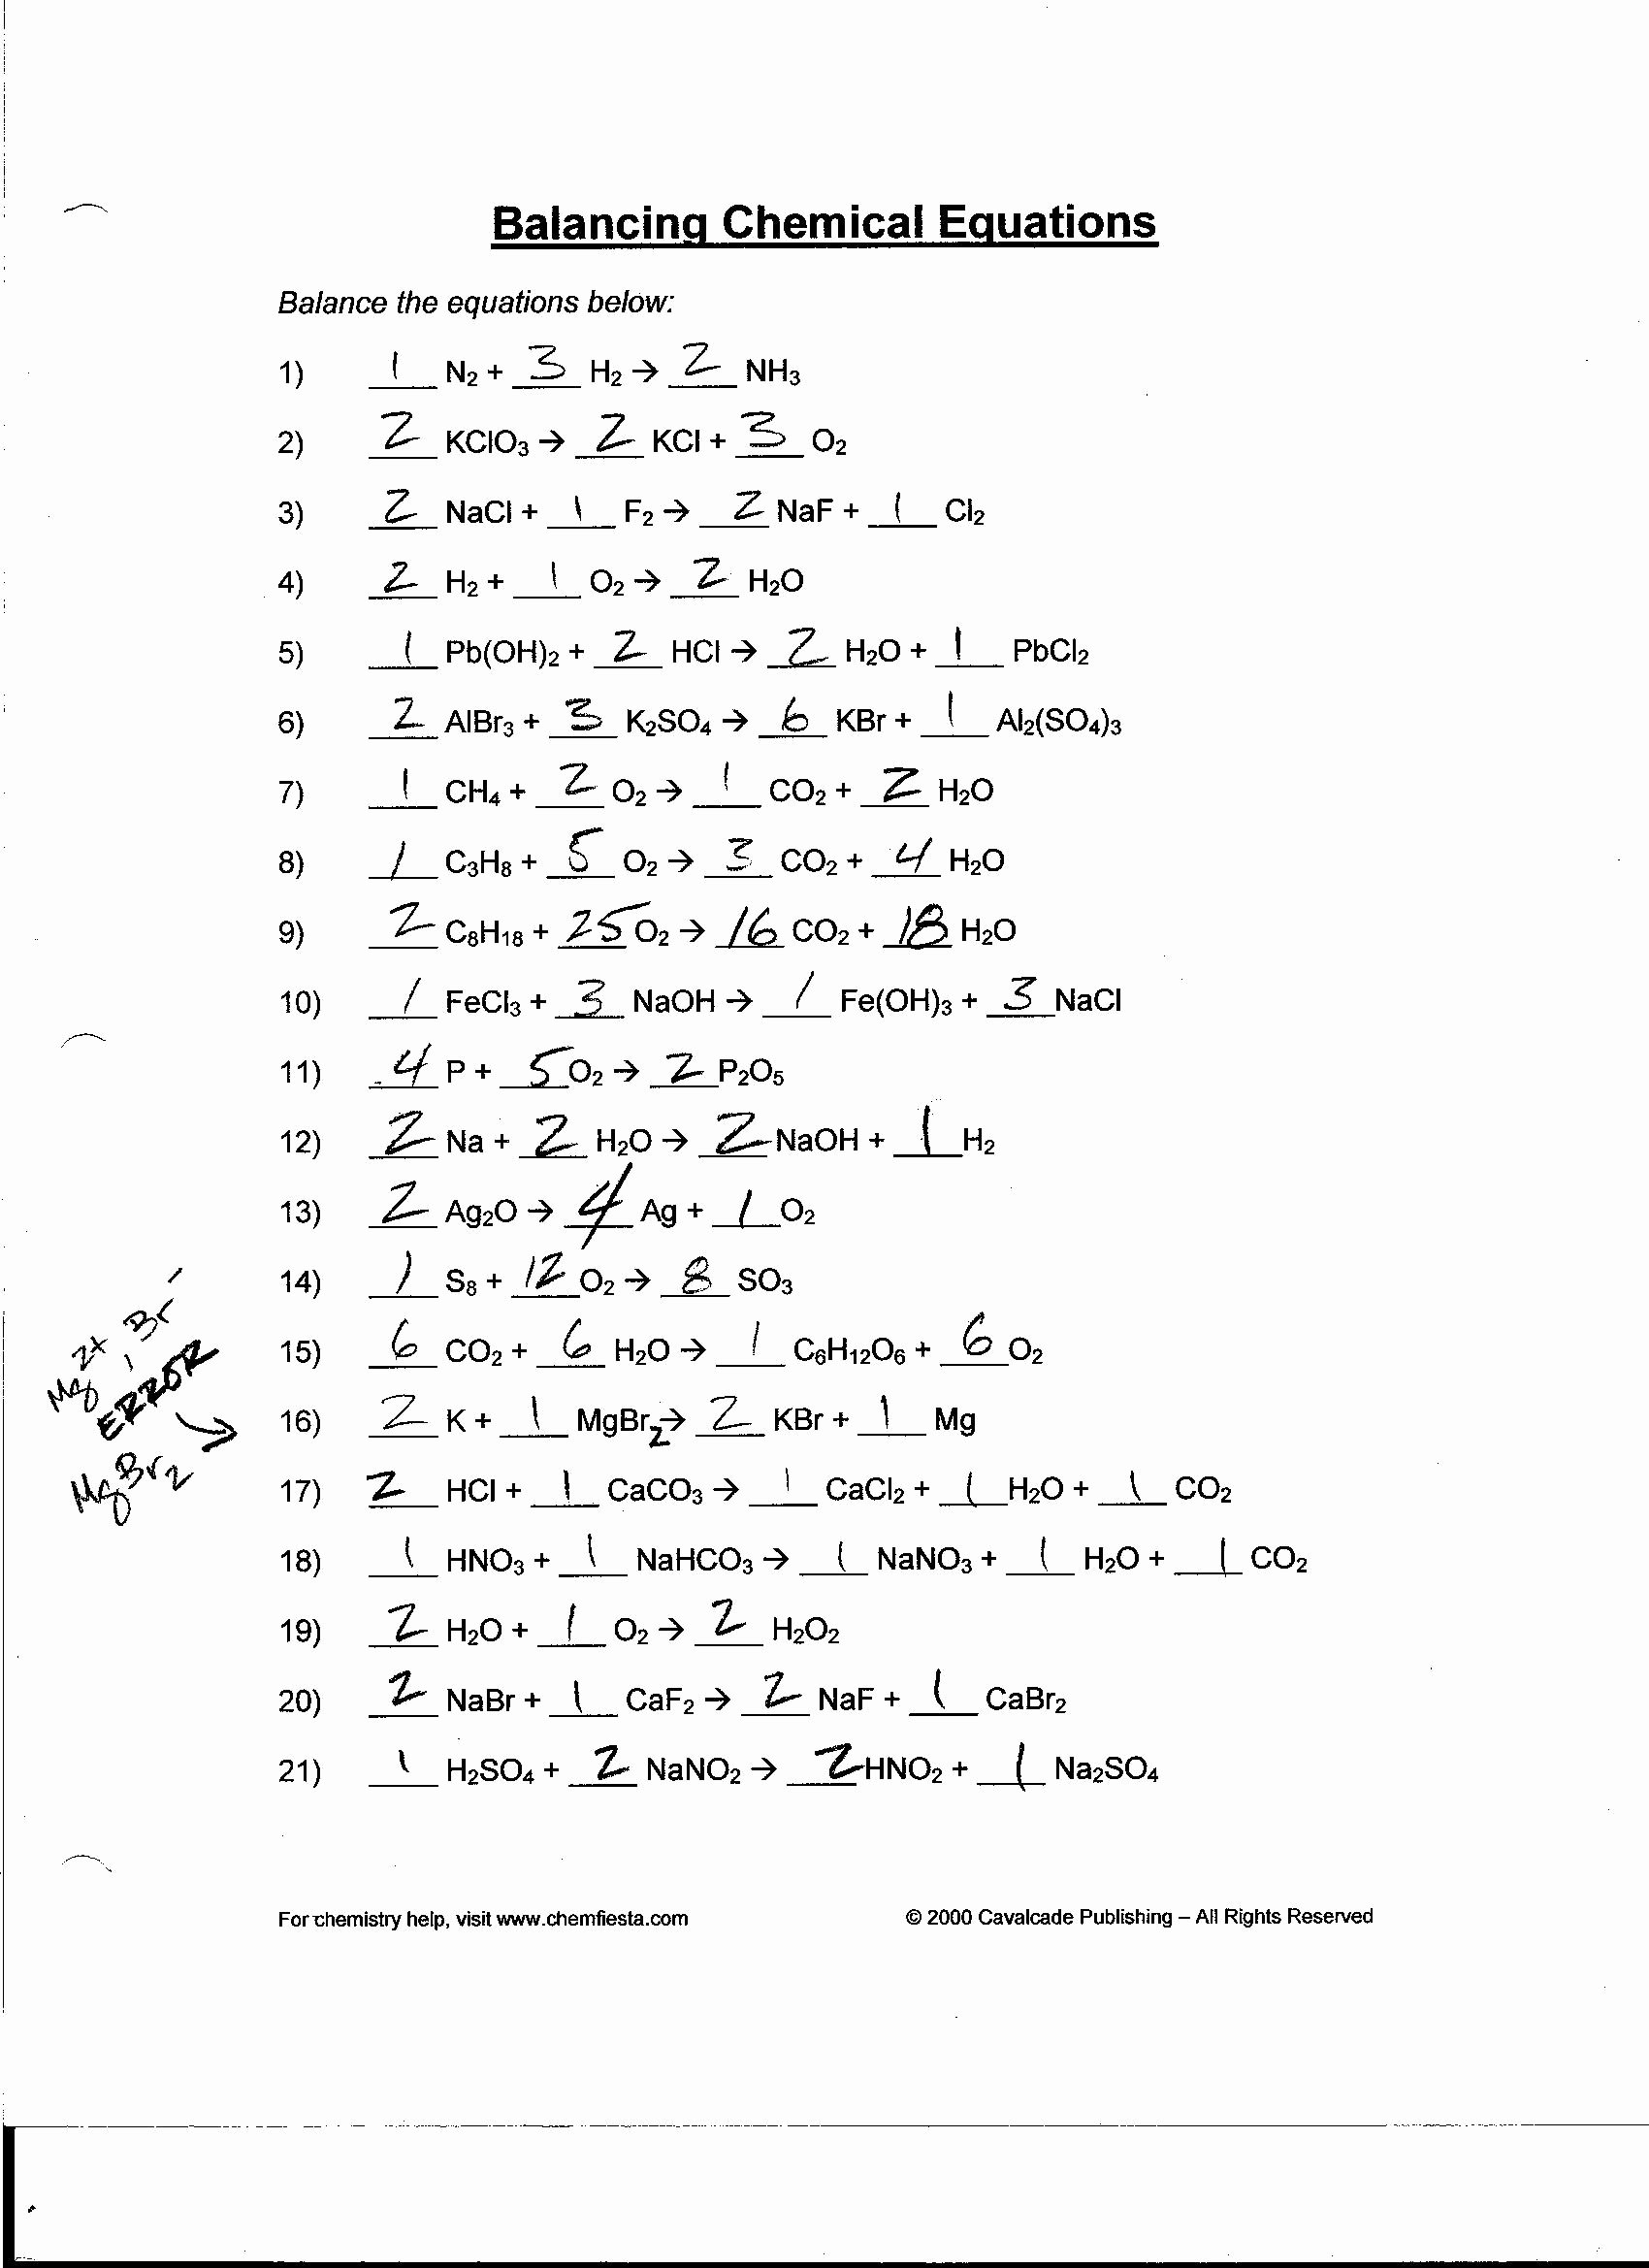 Balancing Chemical Equations
Balance the equations below:
1) 1 N2 + 3 H2 → 2 NH3
2) 2 KClO3 → 2 KCl + 3 O2
3) 2 NaCl + 1 F2 → 2 NaF + 1 Cl2
4) 2 H2 + 1 O2 → 2 H2O
5) 1 Pb(OH)2 + 2 HCl → 2 H2O + 1 PbCl2
6) 2 AlBr3 + 3 K2SO4 → 6 KBr + 1 Al2(SO4)3
7) 1 CH4 + 2 O2 → 1 CO2 + 2 H2O
8) 1 C3H8 + 5 O2 → 3 CO2 + 4 H2O
9) 2 C8H18 + 25 O2 → 16 CO2 + 18 H2O
10) 1 FeCl3 + 3 NaOH → 1 Fe(OH)3 + 3 NaCl
11) 4 P + 5 O2 → 2 P2O5
12) 2 Na + 2 H2O → 2 NaOH + 1 H2
13) 2 Ag2O → 4 Ag + 1 O2
14) 1 S8 + 12 O2 → 8 SO3
15) 6 CO2 + 6 H2O → 1 C6H12O6 + 6 O2
Mg2+, Br-
ERROR →
MgBr2
16) 2 K + 1 MgBr2 → 2 KBr + 1 Mg
17) 2 HCl + 1 CaCO3 → 1 CaCl2 + 1 H2O + 1 CO2
18) 1 HNO3 + 1 NaHCO3 → 1 NaNO3 + 1 H2O + 1 CO2
19) 2 H2O + 1 O2 → 2 H2O2
20) 2 NaBr + 1 CaF2 → 2 NaF + 1 CaBr2
21) 1 H2SO4 + 2 NaNO2 → 2 HNO2 + 1 Na2SO4
For chemistry help, visit www.chemfiesta.com
© 2000 Cavalcade Publishing – All Rights Reserved